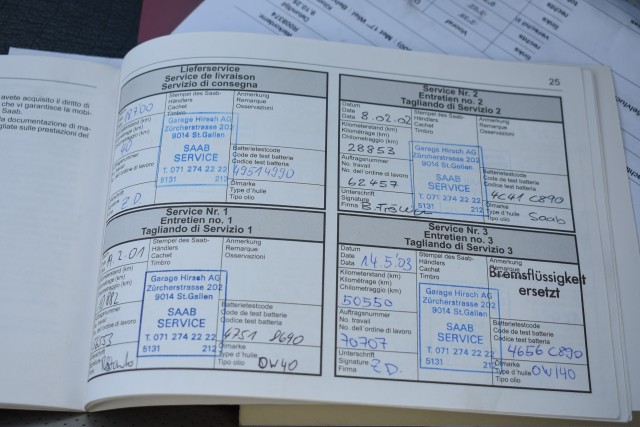 avete acquisito il diritto di
che vi garantisce la mobi-
Saab.
la documentazione di ma-
gliate sulle prestazioni del
25
Lieferservice
Service de livraison
Servizio di consegna
Stempel des Saab-
Händlers
Cachet
Timbro
Anmerkung
Remarque
Osservazioni
Garage Hirsch AG
Zürcherstrasse 202
9014 St.Gallen
SAAB
SERVICE
T. 071 274 22 22
5131
Batterietestcode
Code de test batterie
Codice test batteria
49514990
Ölmarke
Type d'huile
Tipo olio
(km)
40
di lavoro
Z.D.
Service Nr. 1
Entretien no. 1
Tagliando di Servizio 1
2.01
Stempel des Saab-
Händlers
Cachet
Timbro
Anmerkung
Remarque
Osservazioni
(km)
(km)
(km)
di lavoro
Garage Hirsch AG
Zürcherstrasse 202
9014 St.Gallen
SAAB
SERVICE
T. 071 274 22 22
5131 212
Batterietestcode
Code de test batterie
Codice test batteria
Ölmarke
Type d'huile
Tipo olio
0W40
Service Nr. 2
Entretien no. 2
Tagliando di Servizio 2
Datum
Date
Data
8.02.02
Stempel des Saab-
Händlers
Cachet
Timbro
Anmerkung
Remarque
Osservazioni
Kilometerstand (km)
Kilométrage (km)
Chilometraggio (km)
28853
Auftragsnummer
No. travail
No. dell'ordine di lavoro
62457
Unterschrift
Signature
Firma
Garage Hirsch AG
Zürcherstrasse 202
9014 St.Gallen
SAAB
SERVICE
T. 071 274 22 22
5131 212
Batterietestcode
Code de test batterie
Codice test batteria
4C41 C890
Ölmarke
Type d'huile
Tipo olio
Saab
Service Nr. 3
Entretien no. 3
Tagliando di Servizio 3
Datum
Date
Data
14.5.03
Stempel des Saab-
Händlers
Cachet
Timbro
Anmerkung
Remarque
Osservazioni
Bremsflüssigkeit
ersetzt
Kilometerstand (km)
Kilométrage (km)
Chilometraggio (km)
50550
Auftragsnummer
No. travail
No. dell'ordine di lavoro
70707
Unterschrift
Signature
Firma
Z.D.
Garage Hirsch AG
Zürcherstrasse 202
9014 St.Gallen
SAAB
SERVICE
T. 071 274 22 22
5131 212
Batterietestcode
Code de test batterie
Codice test batteria
4656 C890
Ölmarke
Type d'huile
Tipo olio
0W40